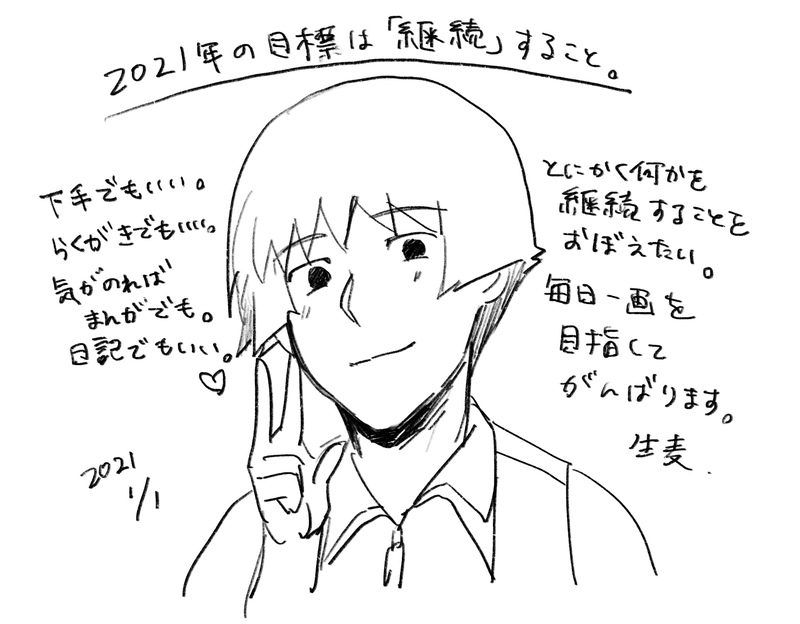 2021年の目標は「継続」すること。
下手でもいい。
らくがきでもいい。
気がのれば
まんがでも。
日記でもいい。
♡
2021
1/1
とにかく何かを
継続することを
おぼえたい。
毎日一画を
目指して
がんばります。
生麦.